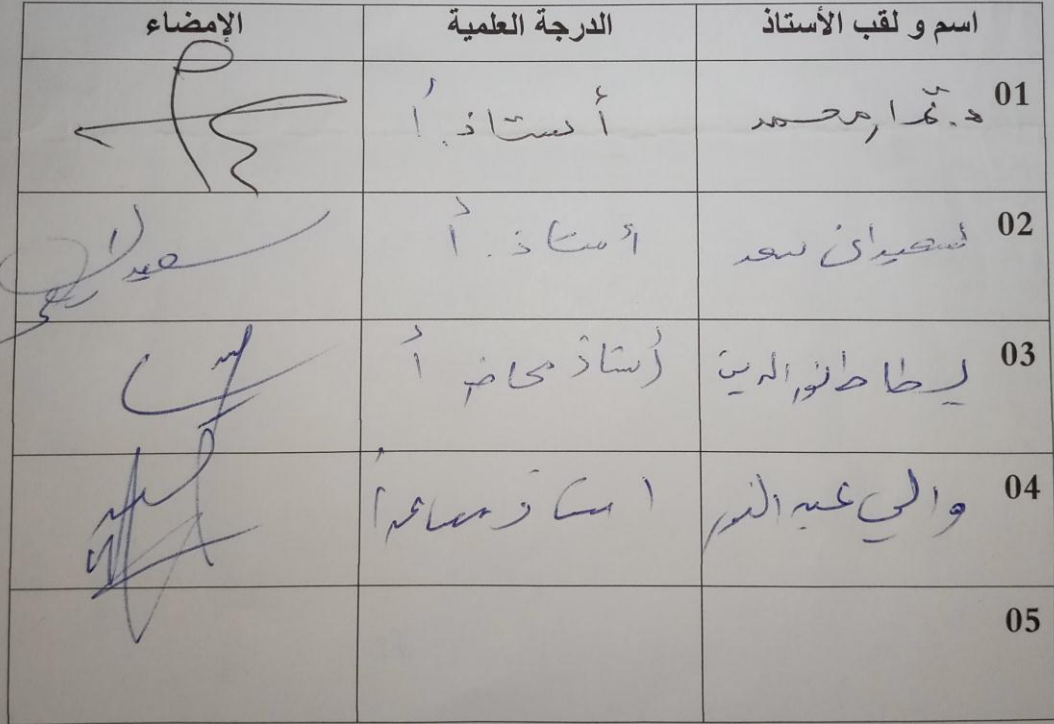 اسم و لقب الأستاذ الدرجة العلمية الإمضاء
01 د. محمد أستاذ. أ
02 سعيداني سعد أستاذ. أ سعيداني
03 نور الدين أستاذ محاضر أ
04 والي عبد النور استاذ مساعد أ
05